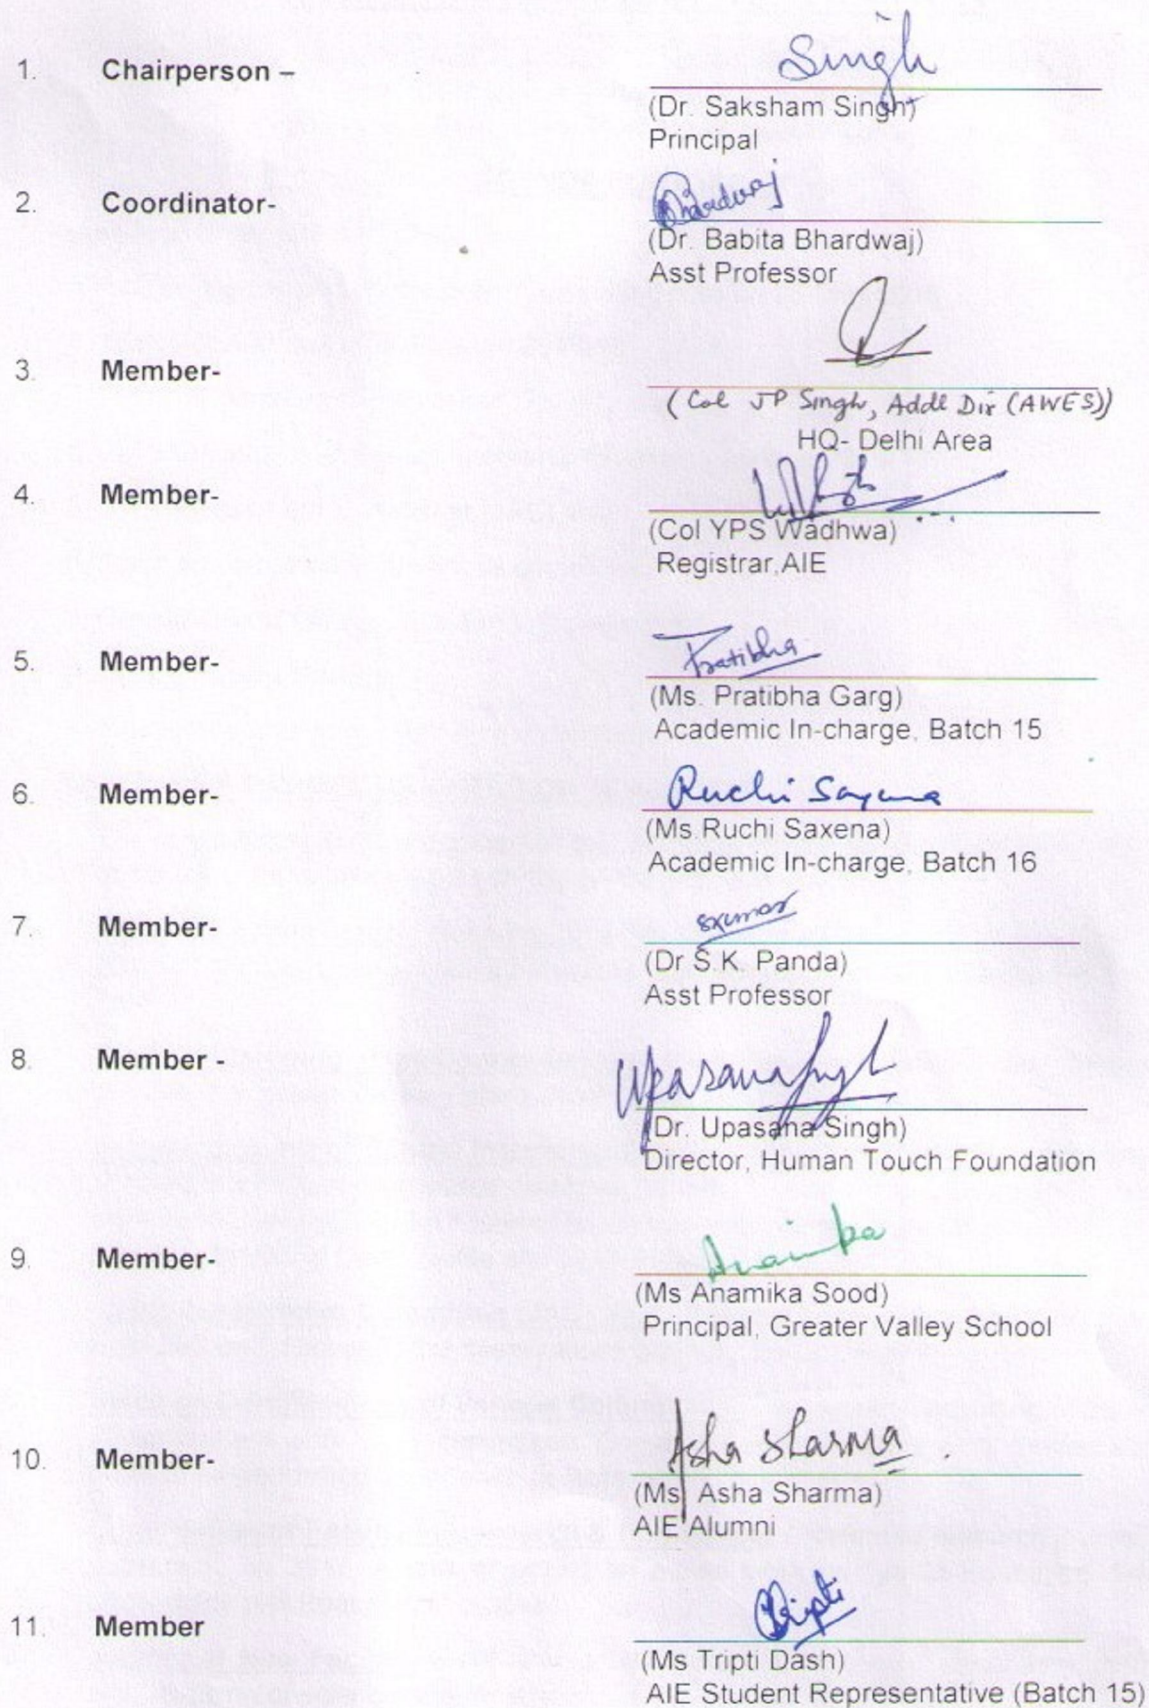 1. Chairperson –
Singh
(Dr. Saksham Singh)
Principal
2. Coordinator-
Bhardwaj
(Dr. Babita Bhardwaj)
Asst Professor
3. Member-
(Col JP Singh, Addl Dir (AWES))
HQ- Delhi Area
4. Member-
(Col YPS Wadhwa)
Registrar,AIE
5. Member-
Pratibha
(Ms. Pratibha Garg)
Academic In-charge, Batch 15
6. Member-
Ruchi Saxena
(Ms.Ruchi Saxena)
Academic In-charge, Batch 16
7. Member-
(Dr S.K. Panda)
Asst Professor
8. Member -
Upasana Singh
(Dr. Upasana Singh)
Director, Human Touch Foundation
9. Member-
Anamika
(Ms Anamika Sood)
Principal, Greater Valley School
10. Member-
Asha Sharma
(Ms. Asha Sharma)
AIE Alumni
11. Member
Tripti
(Ms Tripti Dash)
AIE Student Representative (Batch 15)